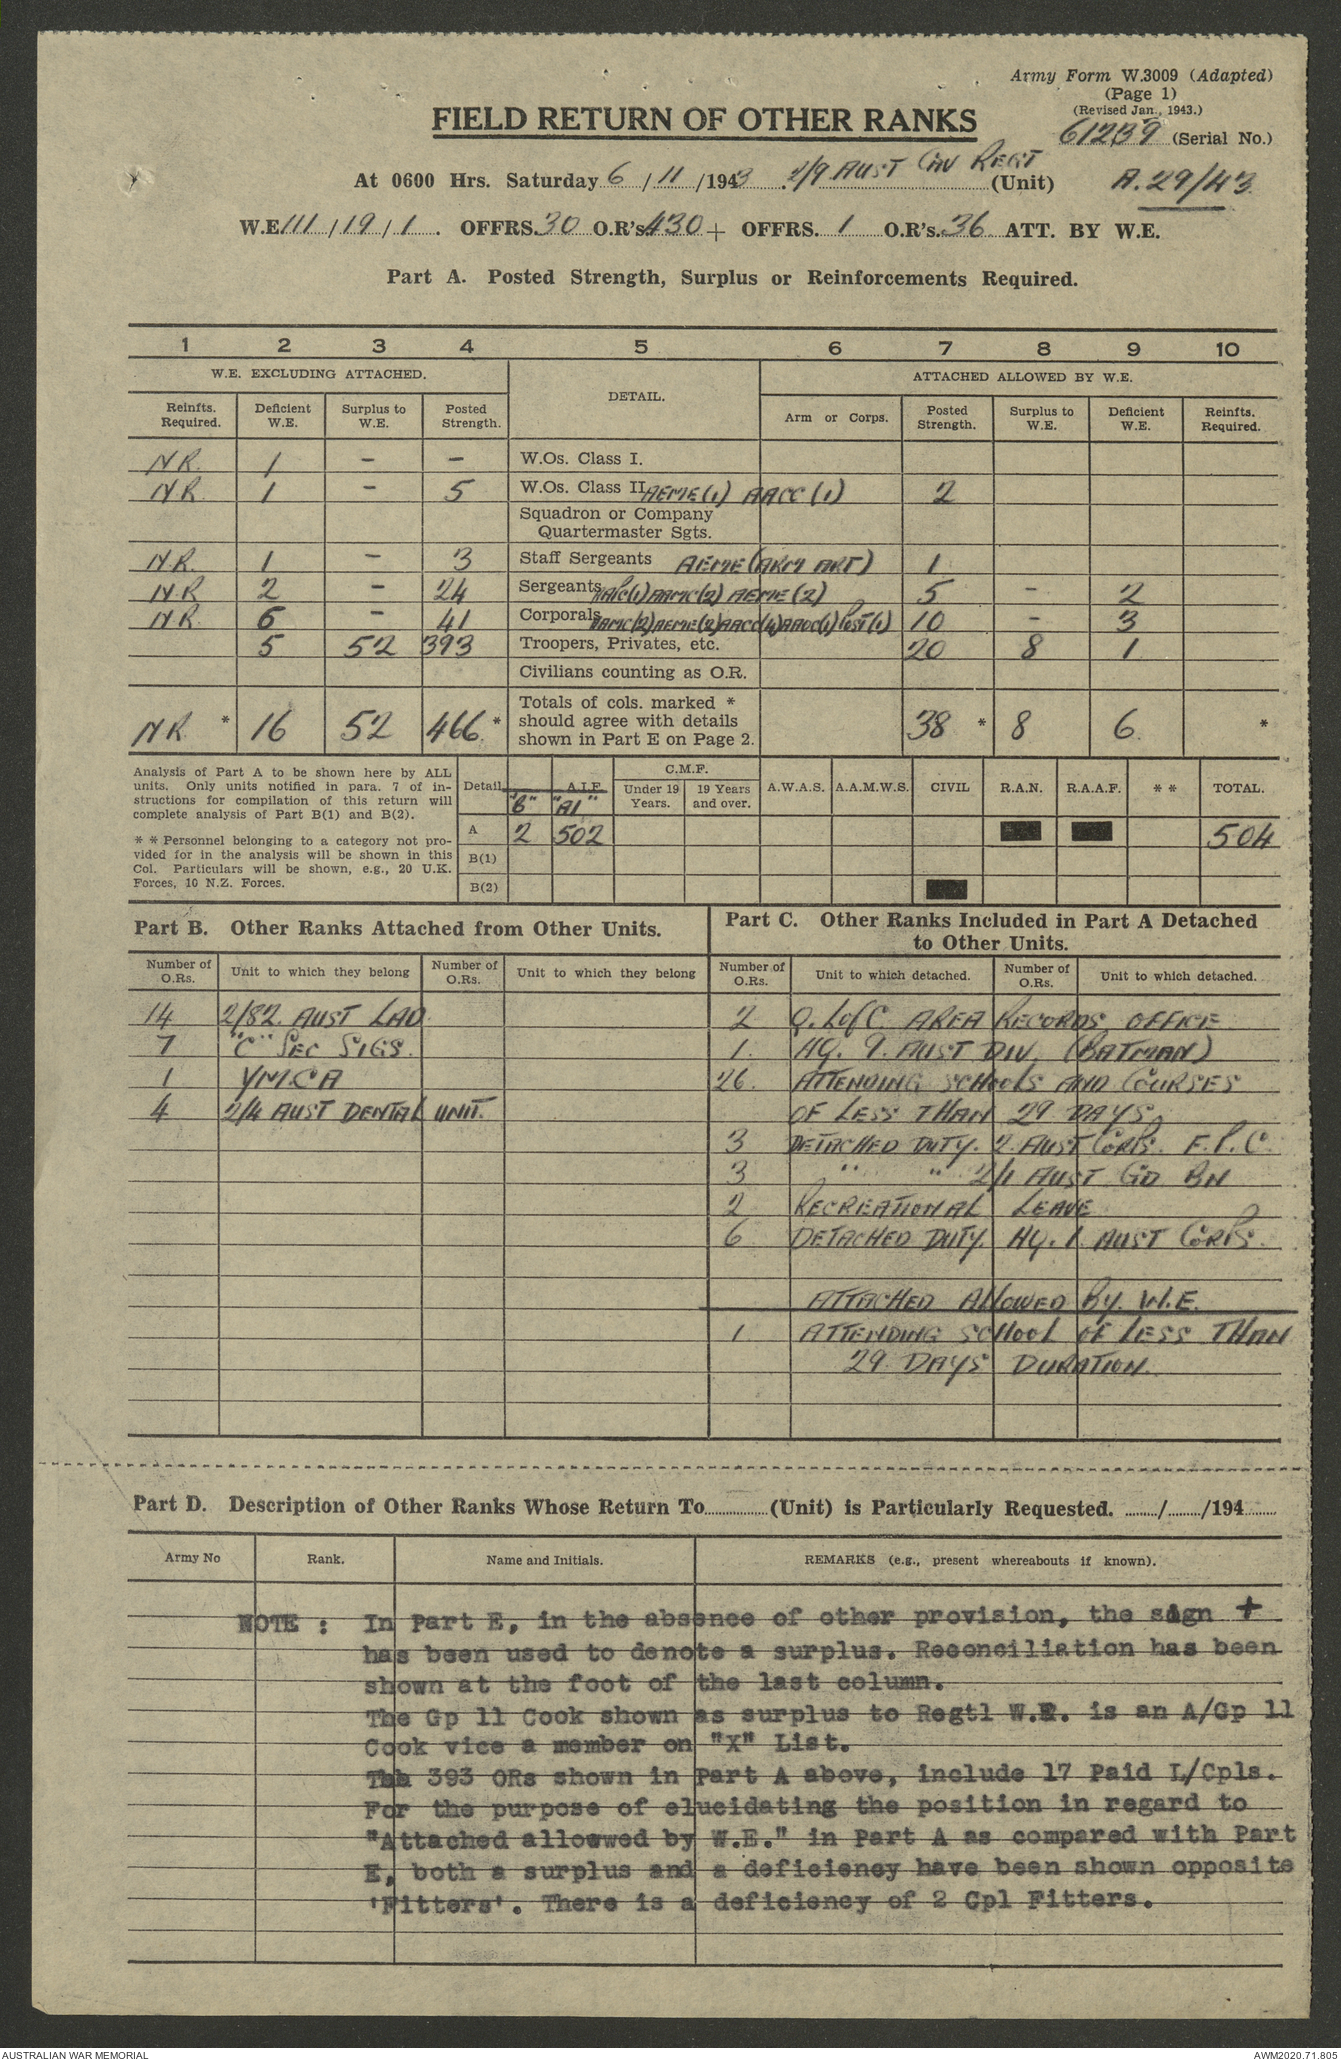 Army Form W.3009 (Adapted)
(Page 1)
(Revised Jan., 1943.)
FIELD RETURN OF OTHER RANKS
61239 (Serial No.)
At 0600 Hrs. Saturday 6 / 11 /1943 2/9 AUST CAV REGT (Unit) A.29/43
W.E. 111 / 19 / 1 . OFFRS. 30 O.R's. 430 + OFFRS. 1 O.R's. 36 ATT. BY W.E.
Part A. Posted Strength, Surplus or Reinforcements Required.
1 2 3 4 5 6 7 8 9 10
W.E. EXCLUDING ATTACHED. DETAIL. ATTACHED ALLOWED BY W.E.
Reinfts. Required. Deficient W.E. Surplus to W.E. Posted Strength. Arm or Corps. Posted Strength. Surplus to W.E. Deficient W.E. Reinfts. Required.
NR. 1 – – W.Os. Class I.
NR 1 – 5 W.Os. Class II. AEME (1) AACC (1) 2
Squadron or Company
Quartermaster Sgts.
N.R. 1 – 3 Staff Sergeants AEME (ARM ART) 1
N.R 2 – 24 Sergeants AAPC(1) AAMC(2) AEME (2) 5 – 2
NR. 6 – 41 Corporals AAMC(2) AEME(2) AACC(4) AAOC(1) POST(1) 10 – 3
5 52 393 Troopers, Privates, etc. 20 8 1
Civilians counting as O.R.
NR * 16 52 466 * Totals of cols. marked * should agree with details shown in Part E on Page 2. 38 * 8 6 *
Analysis of Part A to be shown here by ALL
units. Only units notified in para. 7 of in-
structions for compilation of this return will
complete analysis of Part B(1) and B(2).
* * Personnel belonging to a category not pro-
vided for in the analysis will be shown in this
Col. Particulars will be shown, e.g., 20 U.K.
Forces, 10 N.Z. Forces.
Detail A.I.F. C.M.F. A.W.A.S. A.A.M.W.S. CIVIL R.A.N. R.A.A.F. * * TOTAL.
"B" "A1" Under 19 Years. 19 Years and over.
A 2 502 504
B(1)
B(2)
Part B. Other Ranks Attached from Other Units.
Number of O.Rs. Unit to which they belong Number of O.Rs. Unit to which they belong
14 2/82 AUST LAD.
7 "C" SEC SIGS.
1 YMCA
4 2/4 AUST DENTAL UNIT.
Part C. Other Ranks Included in Part A Detached
to Other Units.
Number of O.Rs. Unit to which detached. Number of O.Rs. Unit to which detached.
2 Q. L of C AREA RECORDS OFFICE
1. HQ. 9. AUST DIV. (BATMAN)
26. ATTENDING SCHOOLS AND COURSES
OF LESS THAN 29 DAYS.
3 DETACHED DUTY. 2. AUST CORPS. F.P.C.
3 " " 2/1 AUST GD BN
2 RECREATIONAL LEAVE
6 DETACHED DUTY. HQ. 1. AUST CORPS.
ATTACHED ALLOWED BY. W.E.
1 ATTENDING SCHOOL OF LESS THAN
29 DAYS DURATION.
Part D. Description of Other Ranks Whose Return To (Unit) is Particularly Requested. / /194
Army No Rank. Name and Initials. REMARKS (e.g., present whereabouts if known).
NOTE : In Part E, in the absence of other provision, the sign +
has been used to denote a surplus. Reconciliation has been
shown at the foot of the last column.
The Gp 11 Cook shown as surplus to Regtl W.E. is an A/Gp 11
Cook vice a member on "X" List.
The 393 ORs shown in Part A above, include 17 Paid L/Cpls.
For the purpose of elucidating the position in regard to
"Attached alloewed by W.E." in Part A as compared with Part
E, both a surplus and a deficiency have been shown opposite
'Fitters'. There is a deficiency of 2 Cpl Fitters.
AUSTRALIAN WAR MEMORIAL AWM2020.71.805